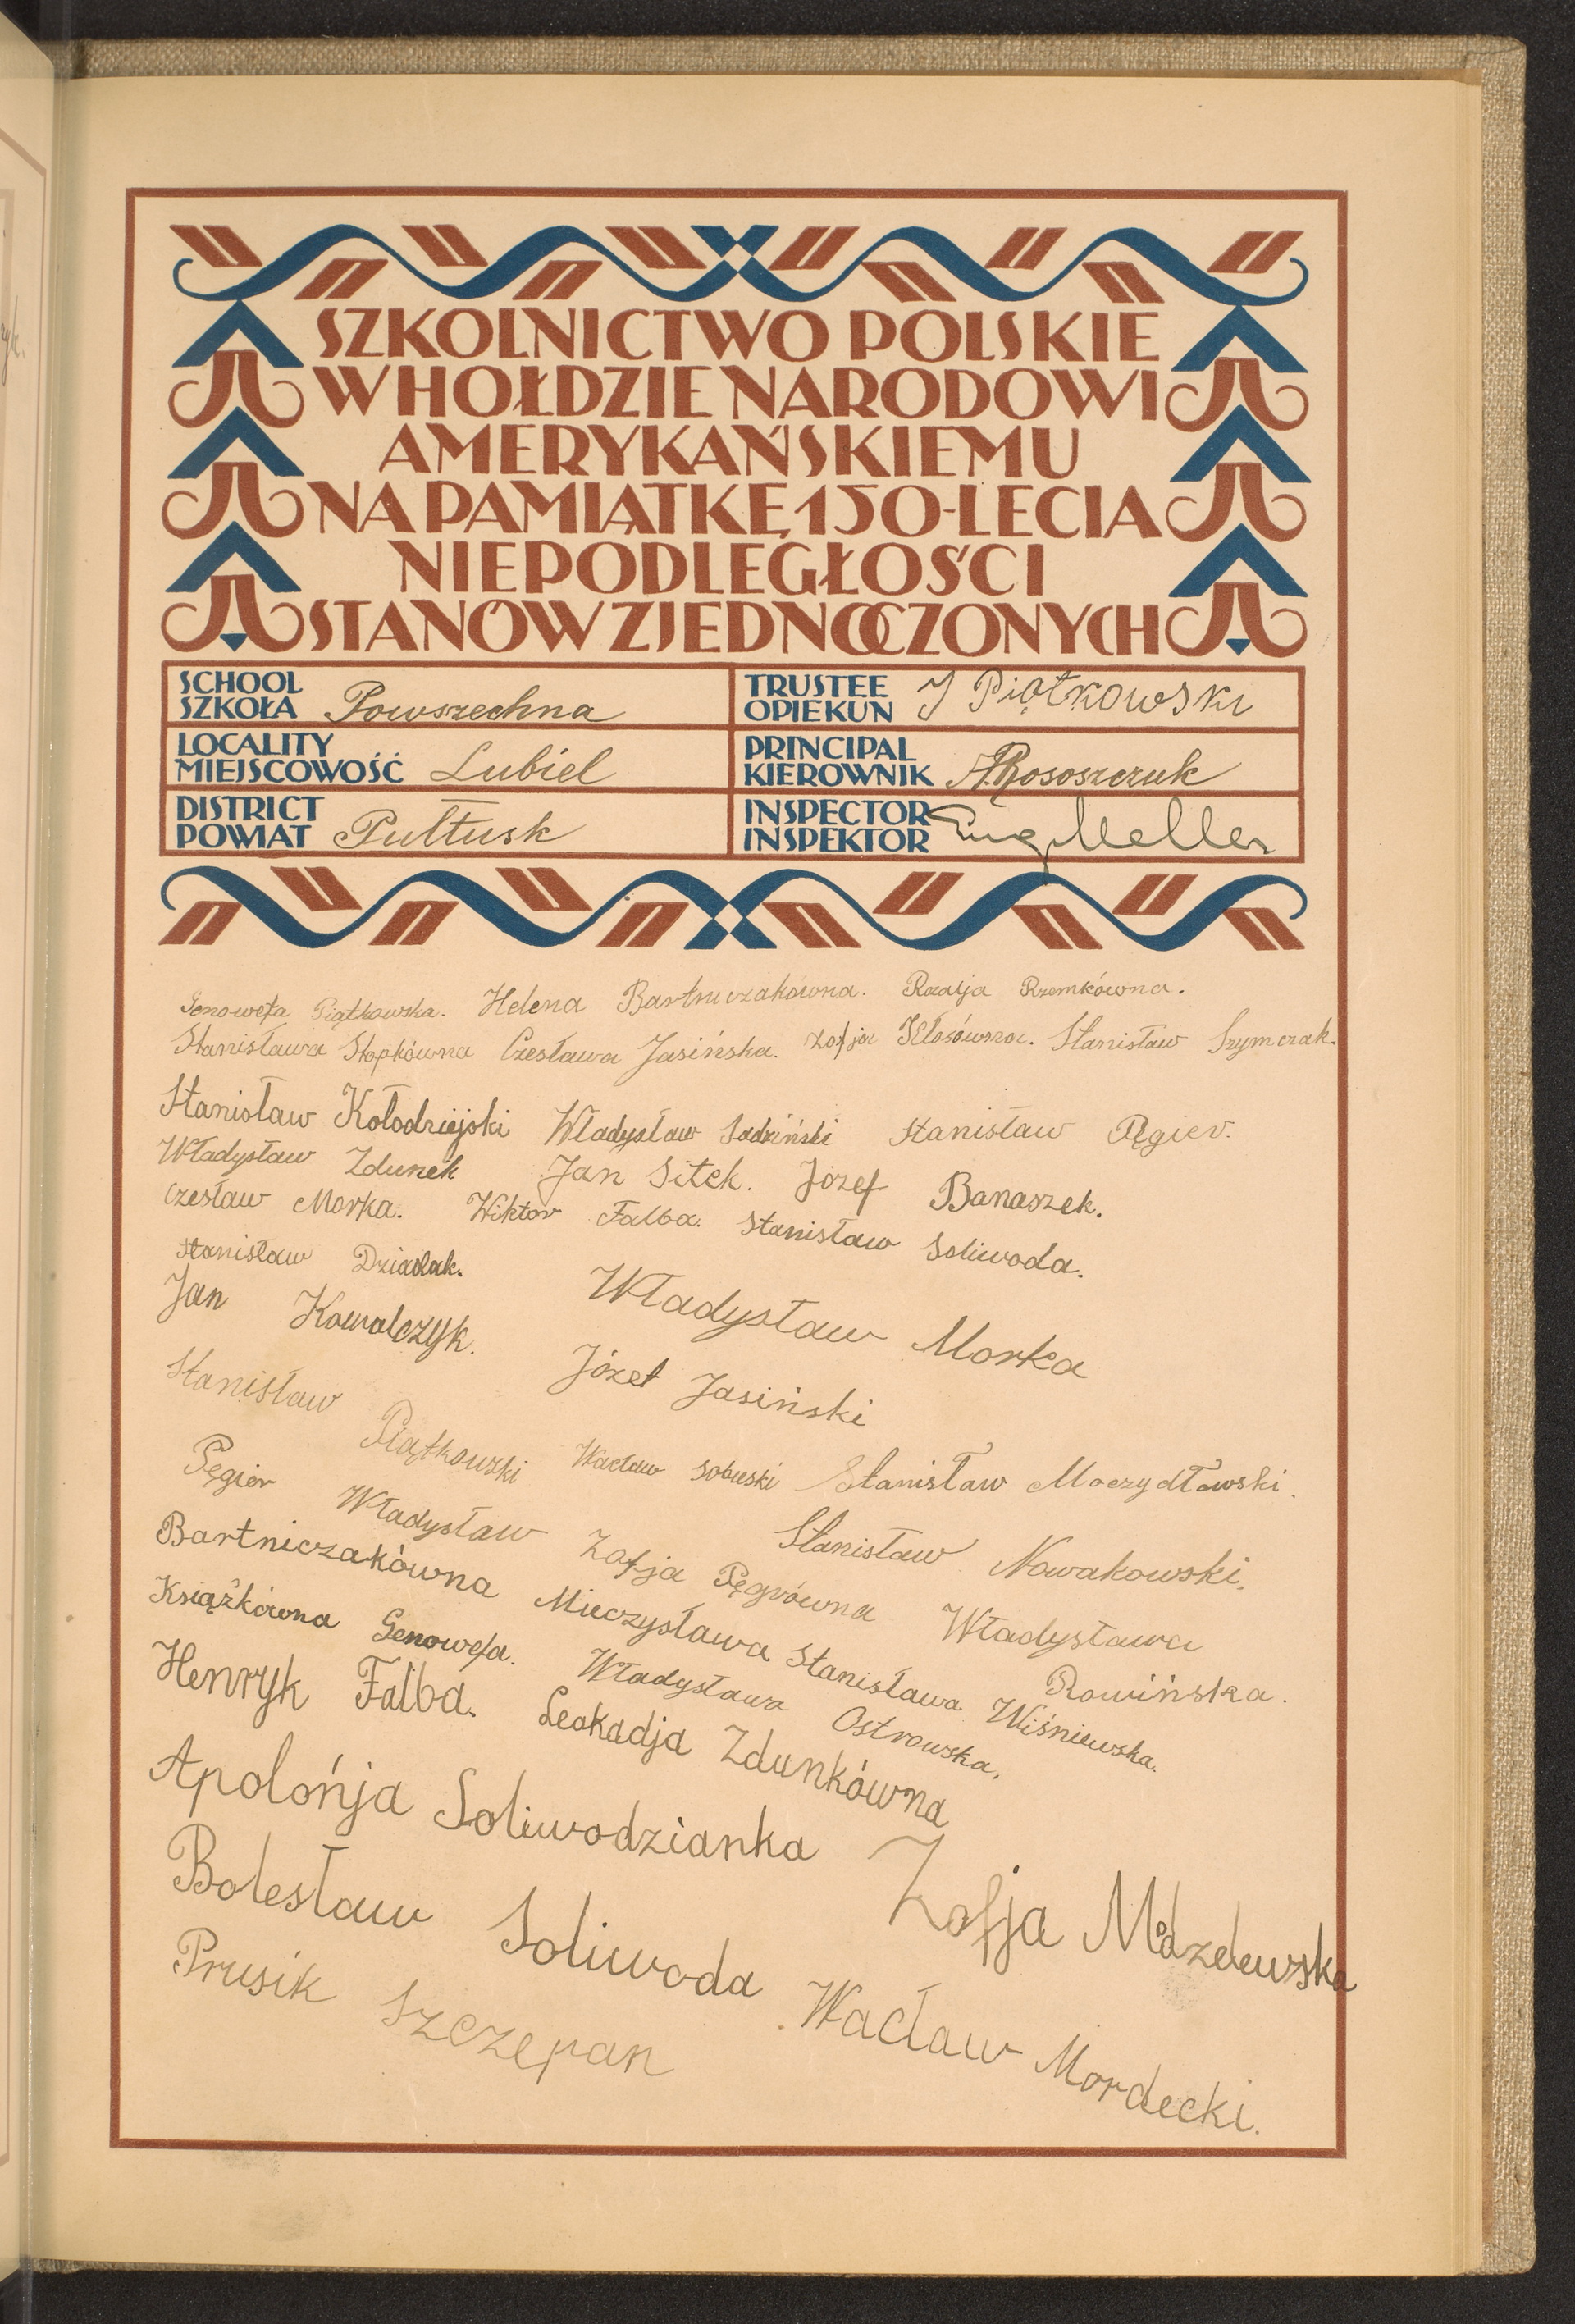 SZKOLNICTWO POLSKIE
W HOŁDZIE NARODOWI
AMERYKAŃSKIEMU
NA PAMIĄTKĘ 150-LECIA
NIEPODLEGŁOŚCI
STANÓW ZJEDNOCZONYCH
SCHOOL
SZKOŁA Powszechna
TRUSTEE
OPIEKUN J Piątkowski
LOCALITY
MIEJSCOWOŚĆ Lubiel
PRINCIPAL
KIEROWNIK A. Rososzczuk
DISTRICT
POWIAT Pułtusk
INSPECTOR
INSPEKTOR Eug Meller
Genowefa Piątkowska. Helena Bartniczakówna. Rozalja Rzemkówna.
Stanisława Stopkówna Czesława Jasińska. Zofja Kłosówna. Stanisław Szymczak.
Stanisław Kołodziejski Władysław Sadziński Stanisław Pęgier.
Władysław Zdunek Jan Sitek. Józef Banaszek.
Czesław Morka. Wiktor Falba. Stanisław Soliwoda.
Stanisław Dziadak.
Władysław Morka
Jan Kowalczyk.
Józef Jasiński
Stanisław Piątkowski Wacław Sobieski Stanisław Moczydłowski.
Pęgier Władysław Zofja Pęgrówna Stanisław Nowakowski.
Władysława Rowińska.
Bartniczakówna Mieczysława Stanisława Wiśniewska.
Książkówna Genowefa. Władysława Ostrowska.
Henryk Falba. Leokadja Zdunkówna
Apolońja Soliwodzianka Zofja
Bolesław Soliwoda Wacław Mordecki.
Prusik Szczepan